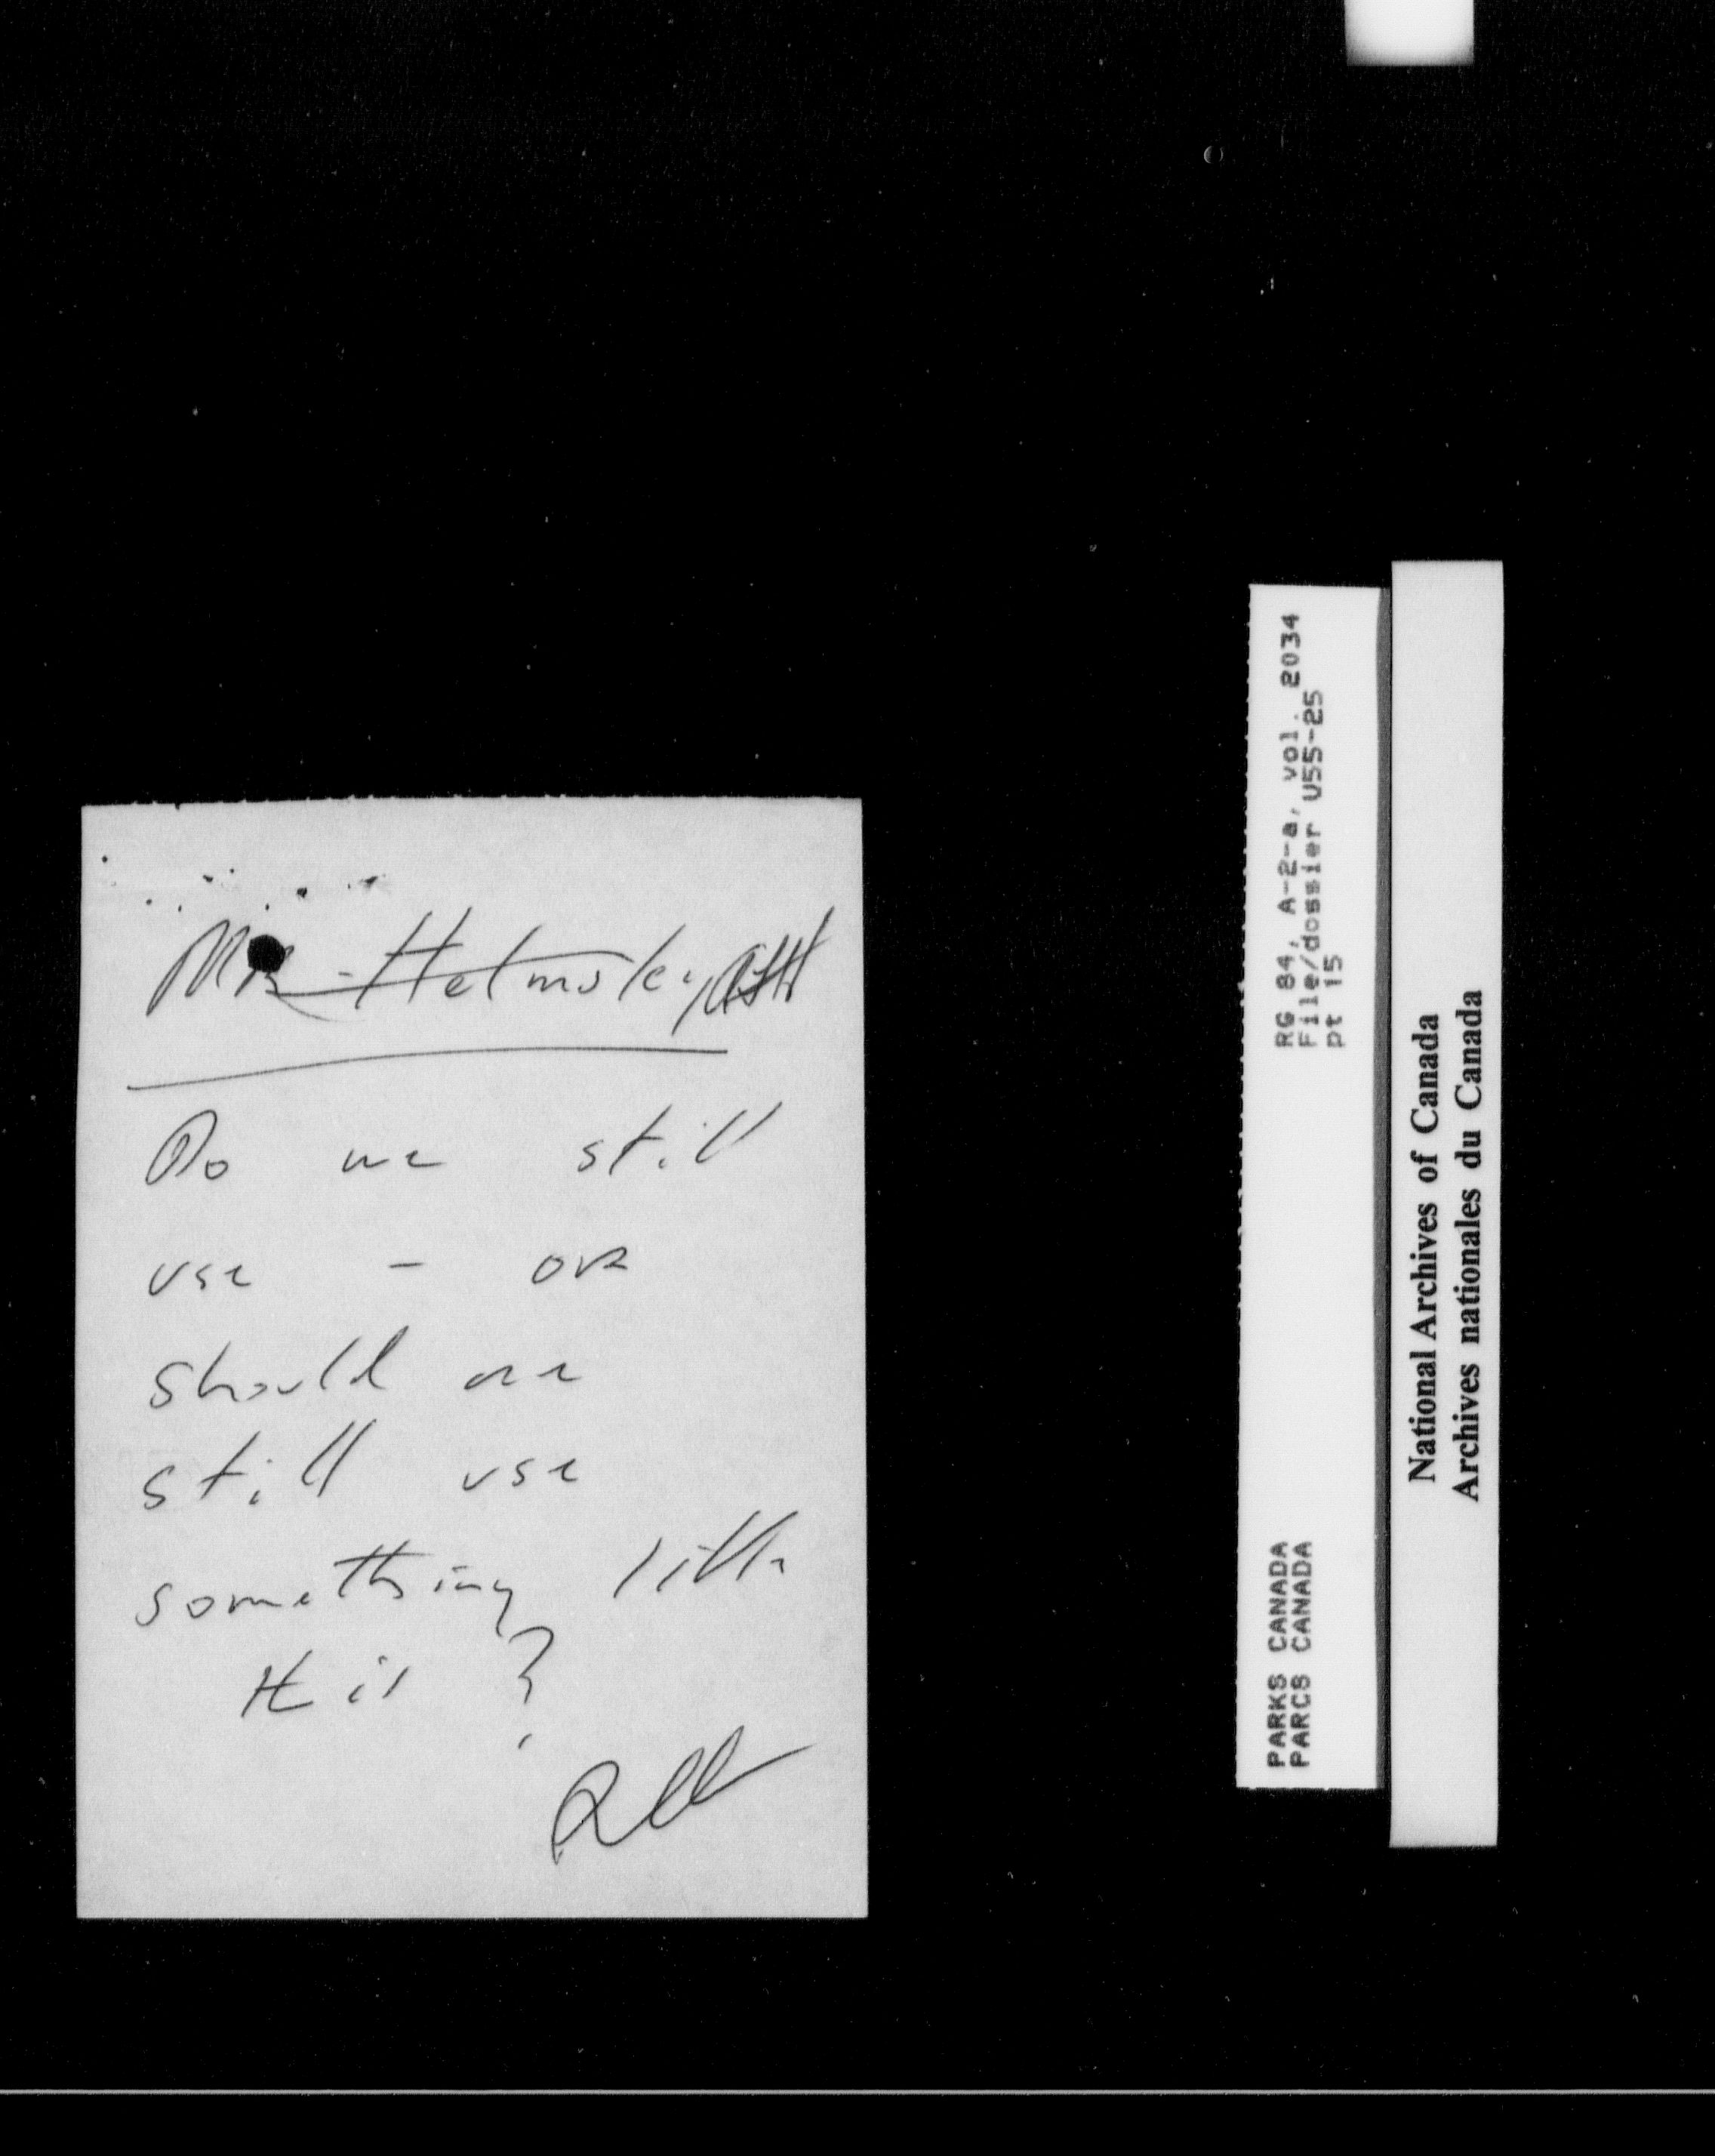 Mr. Helmsley
Do we still
use - or
should we
still use
something like
this?
RG 84, A-2-a, vol. 2034
File/dossier U55-25
pt 15
PARKS CANADA
PARCS CANADA
National Archives of Canada
Archives nationales du Canada